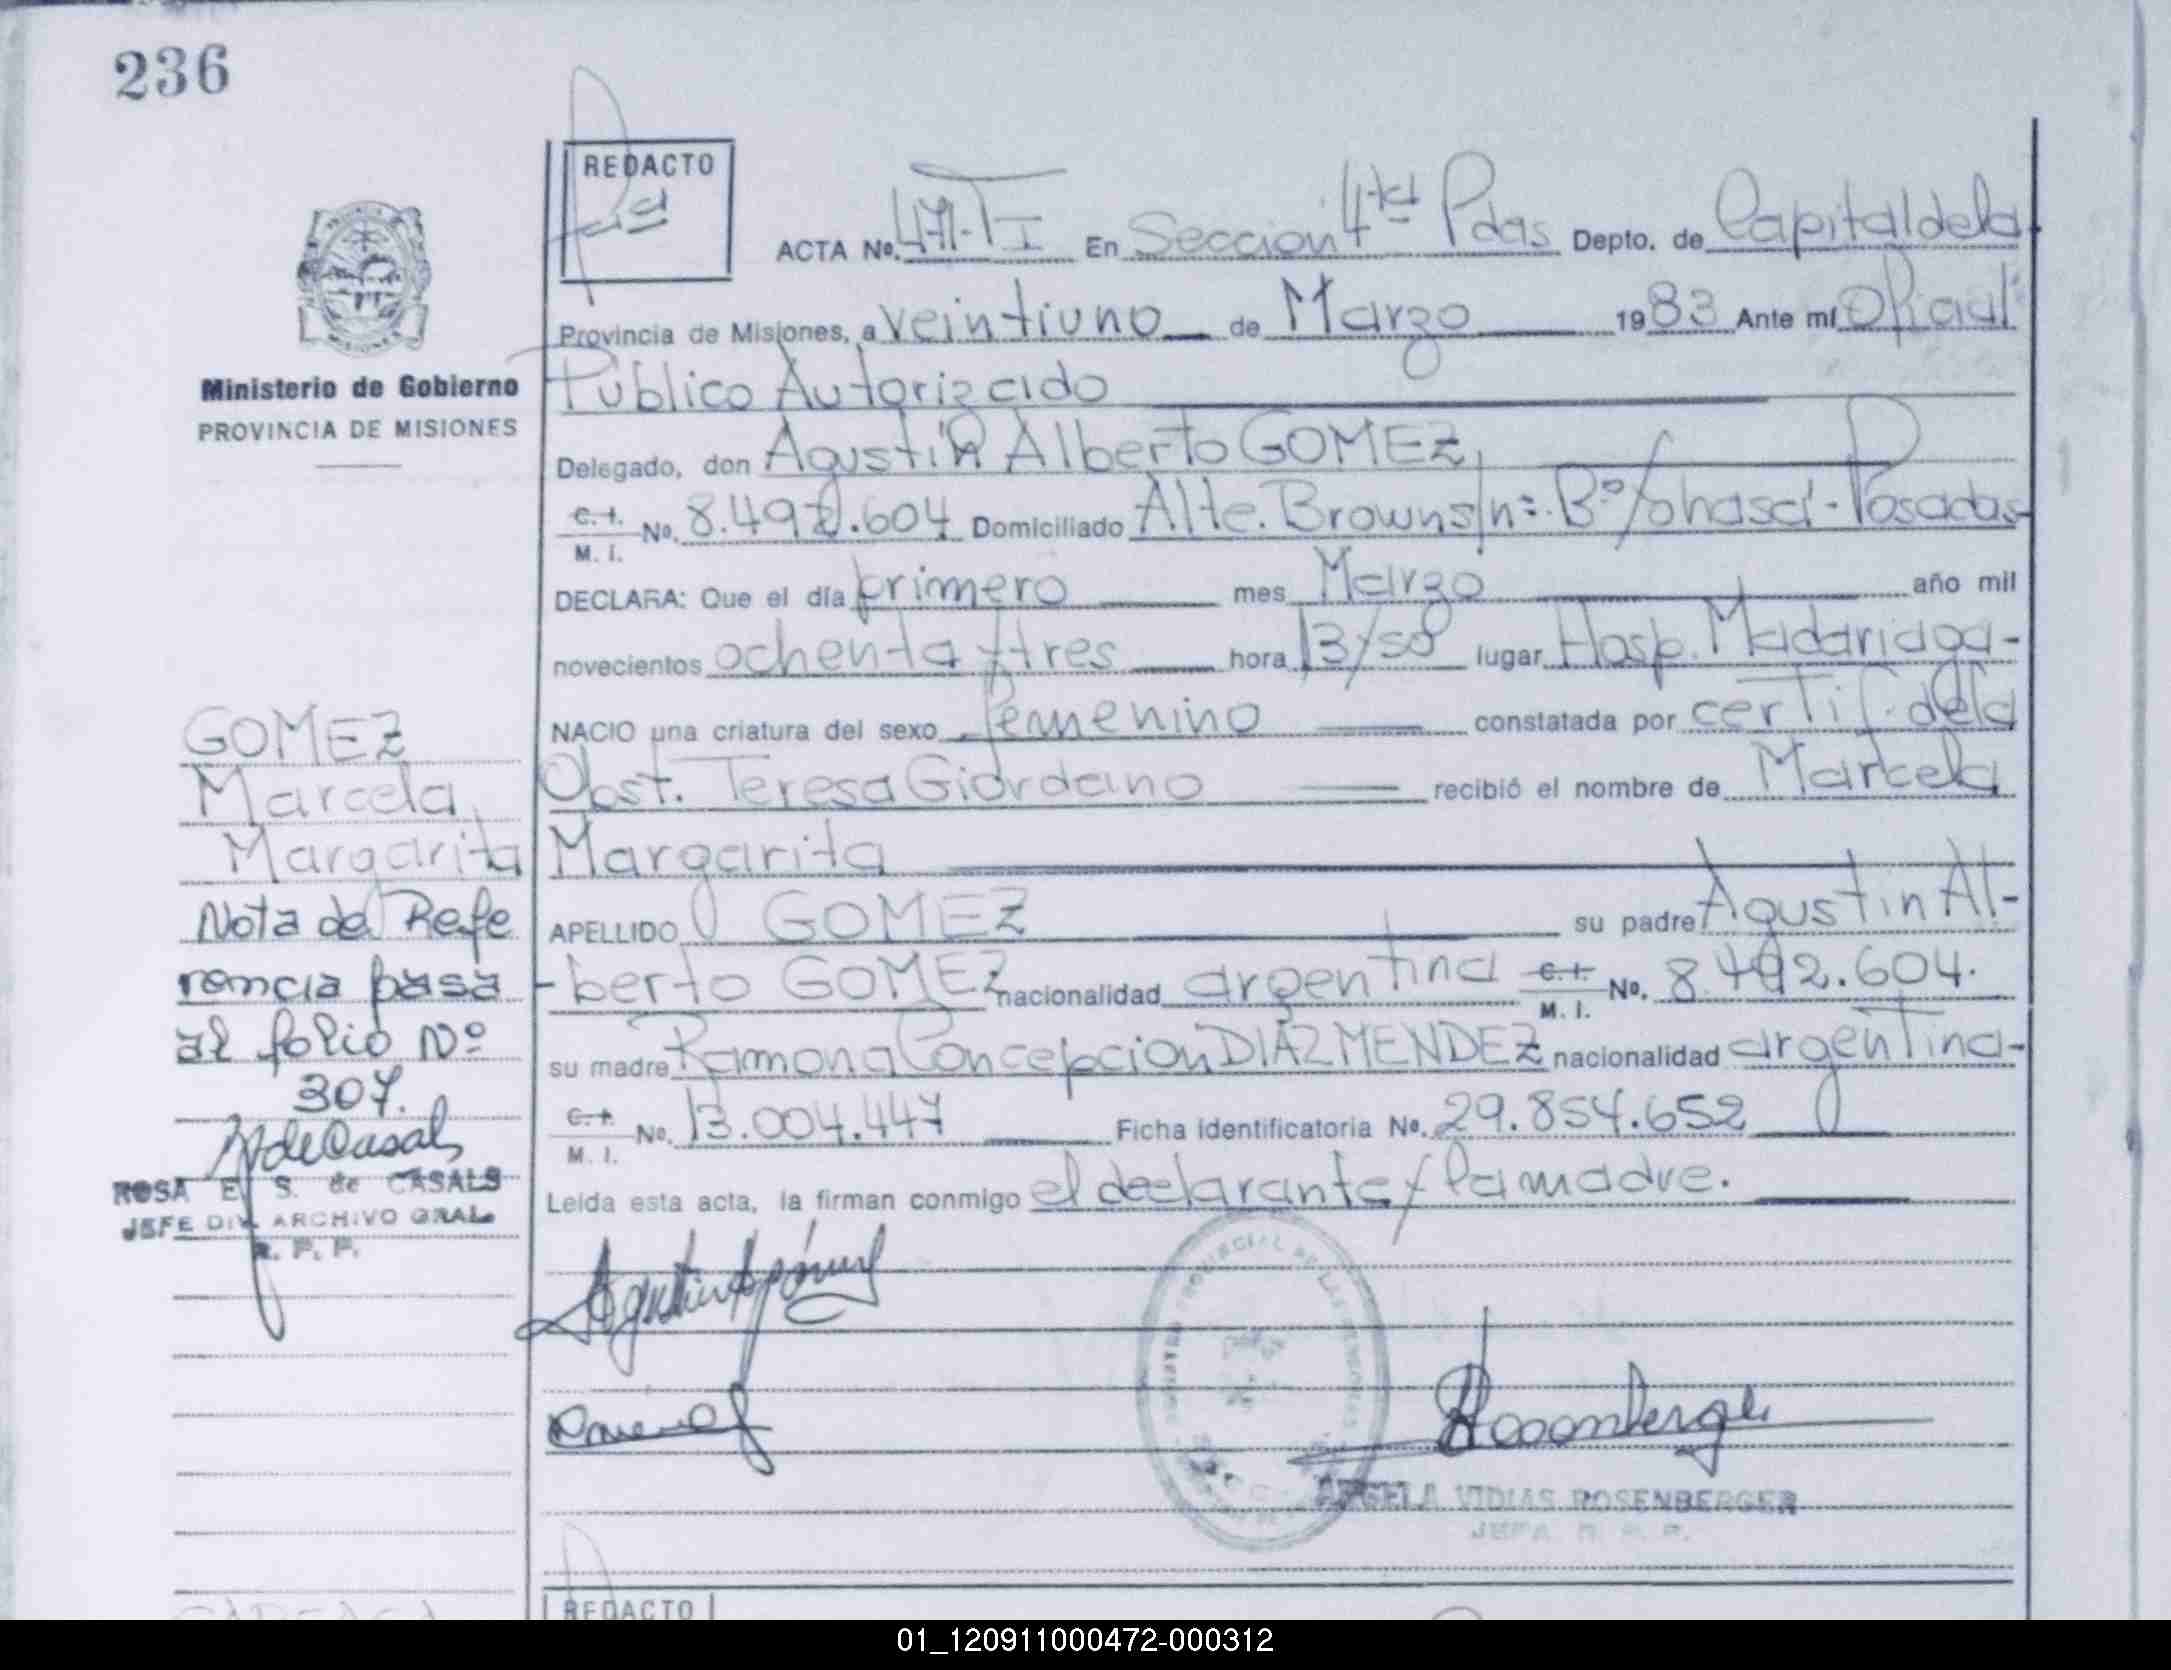 236
REDACTO
ACTA No. 471-T I En Sección 4ta Pdas Depto. de Capital de la
Provincia de Misiones, a veintiuno de Marzo 1983 Ante mí Oficial
Público Autorizado
Ministerio de Gobierno
PROVINCIA DE MISIONES
Delegado, don Agustín Alberto GOMEZ,
C. I. M. I. No. 8.492.604 Domiciliado Alte. Brown s/nº. Bº Yohasá - Posadas
DECLARA: Que el día primero mes Marzo año mil
novecientos ochenta y tres hora 13/50 lugar Hosp. Madariaga-
NACIO una criatura del sexo femenino constatada por certif. de la
Obst. Teresa Giordano recibió el nombre de Marcela
Margarita
APELLIDO GOMEZ su padre Agustin Al-
-berto GOMEZ nacionalidad argentina C. I. M. I. No. 8.492.604.
su madre Ramona Concepcion DIAZ MENDEZ nacionalidad argentina-
C. I. M. I. No. 13.004.447 Ficha identificatoria No. 29.854.652
Leída esta acta, la firman conmigo el declarante y la madre.
GOMEZ
Marcela
Margarita
Nota de Refe
rencia pasa
al folio Nº
307.
ROSA E. S. de CASALS
JEFE DIV. ARCHIVO GRAL.
R. P. P.
ANGELA VIDIAS ROSENBERGER
JEFA R. P. P.
REDACTO
01_120911000472-000312